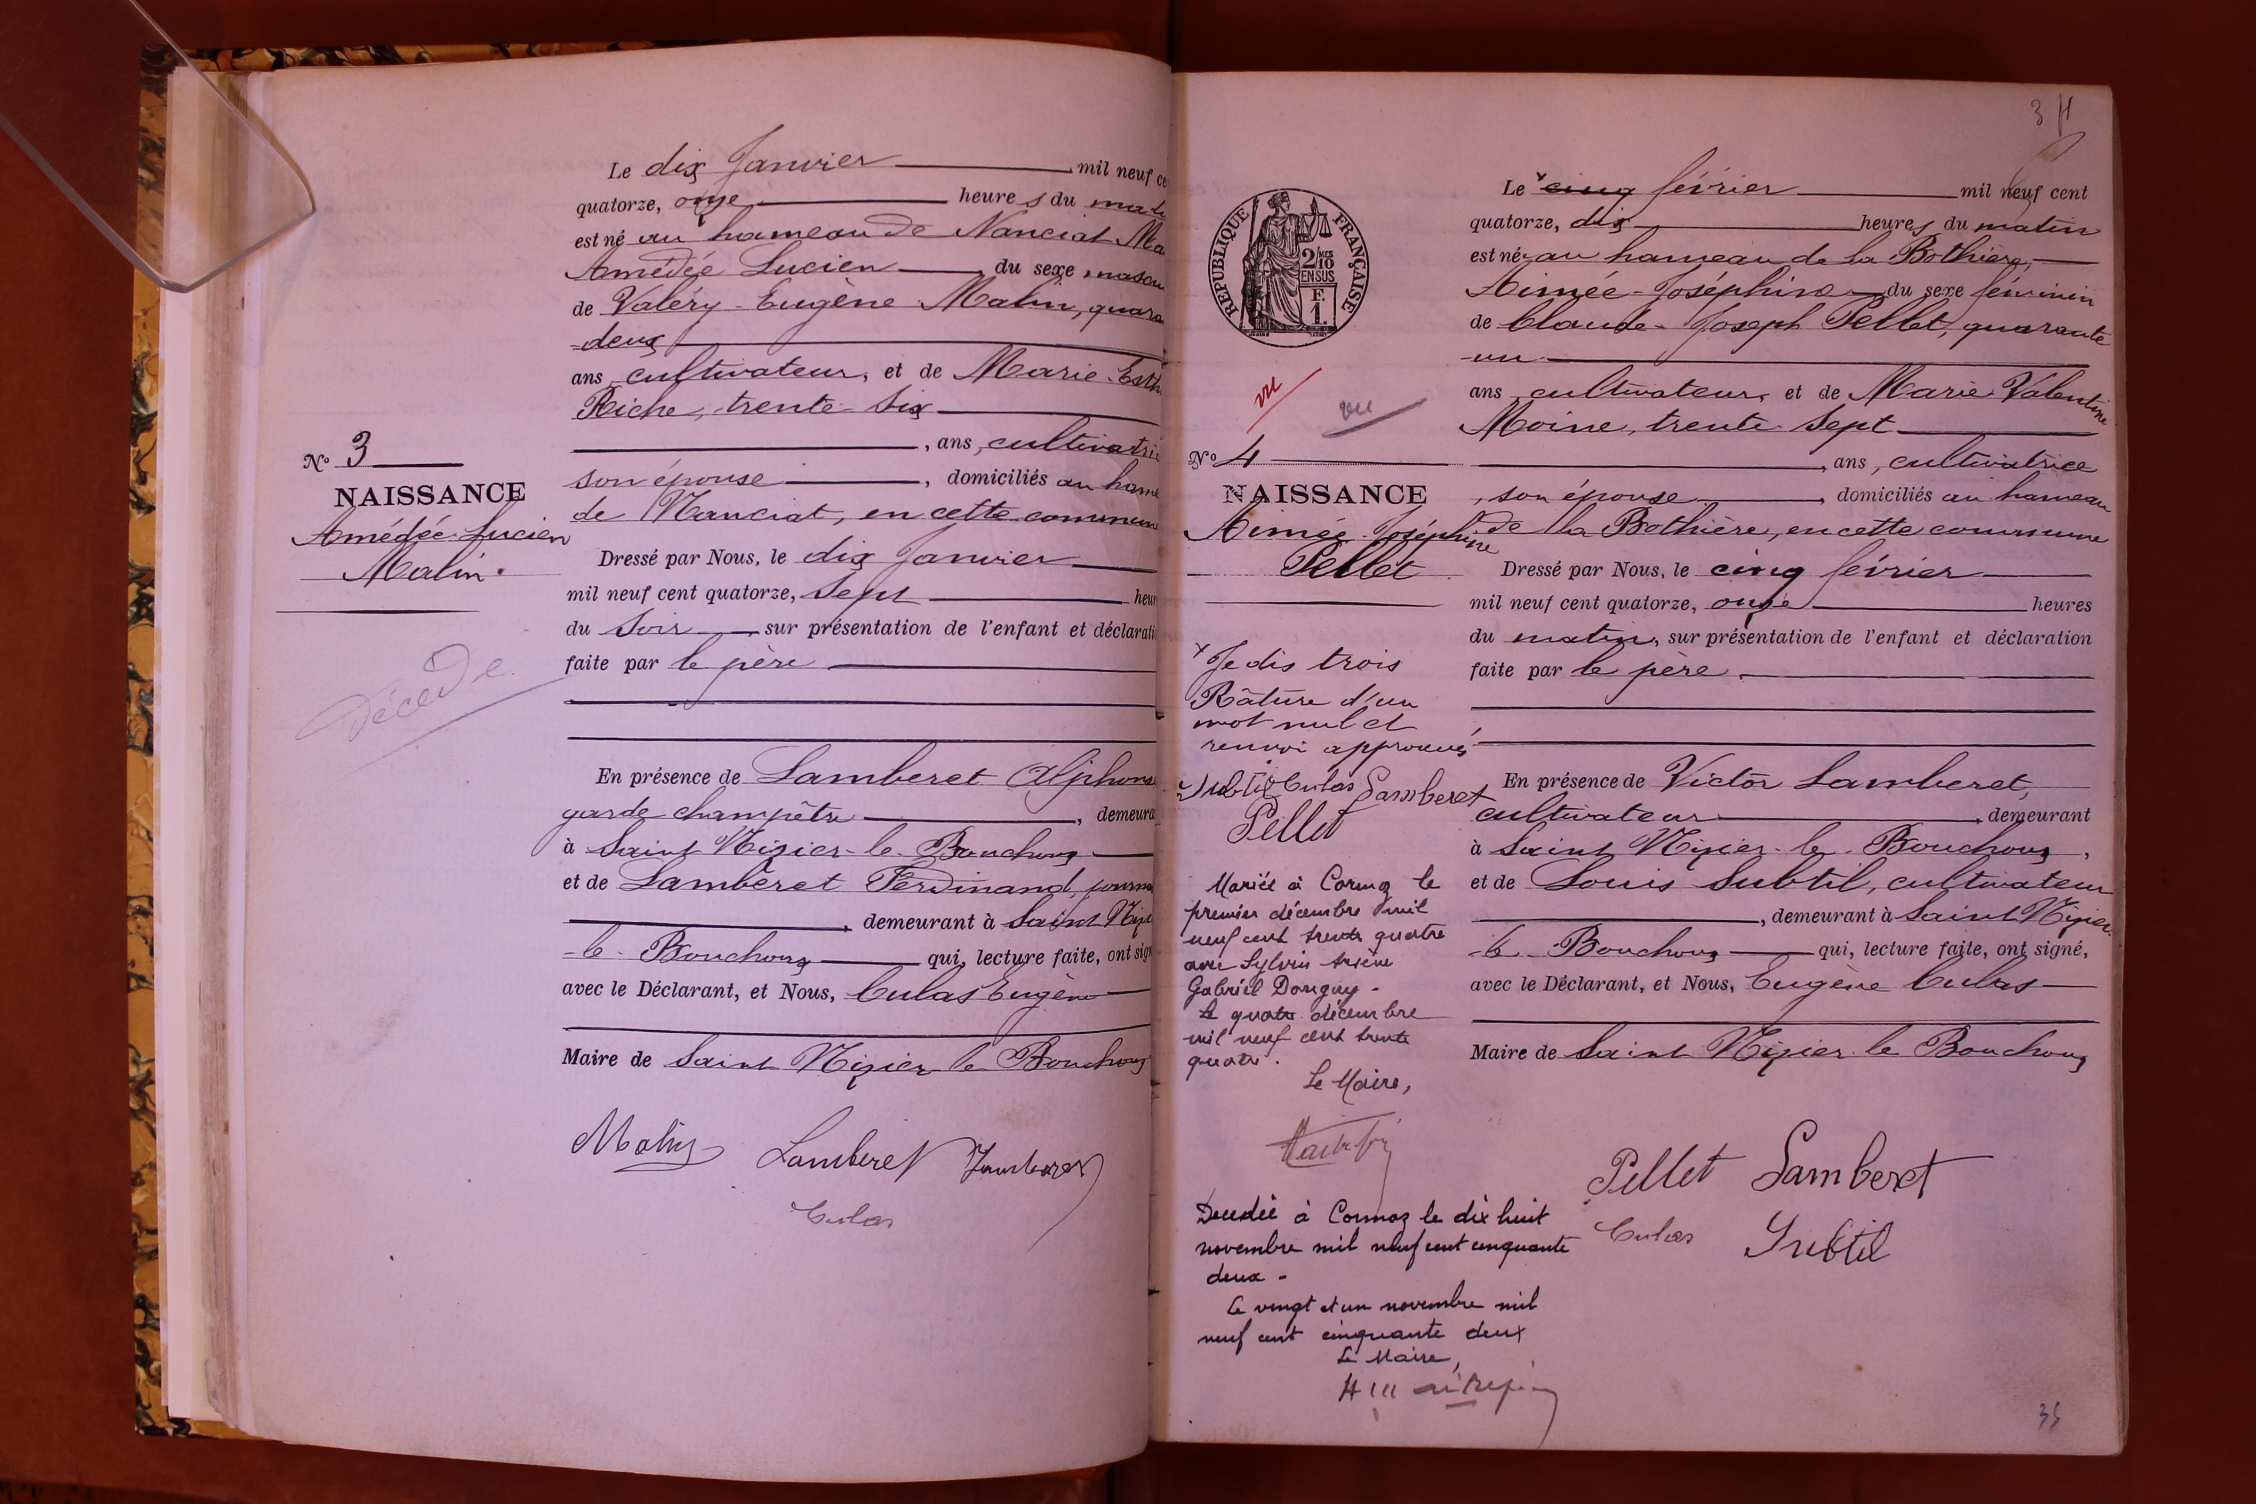 Le dix Janvier mil neuf ce
quatorze, onze heures du mati
est né au hameau de Nanciat Ma
Amédée Lucien du sexe mascu
de Valéry-Eugène Malin, quara
-deux
ans, cultivateur, et de Marie-Esth
Riche, trente-six
, ans, cultivatri
son épouse, domiciliés au hame
de Nanciat, en cette commune
Dressé par Nous, le dix Janvier
mil neuf cent quatorze, sept heur
du soir sur présentation de l'enfant et déclarati
faite par le père
En présence de Lamberet Alphons
garde champêtre, demeura
à Saint Nizier-le-Bouchoux
et de Lamberet Ferdinand, journa
, demeurant à Saint Nizi
-le-Bouchoux qui, lecture faite, ont sig
avec le Déclarant, et Nous, Culas Eugène
Maire de Saint Nizier le Bouchoux
Malin Lamberet Lamberet
Culas
No 3
NAISSANCE
Amédée-Lucien
Malin
Décédé
34
RÉPUBLIQUE FRANÇAISE
2/10
EN SUS
F.
1.
vu
vu
No 4
NAISSANCE
Aimée-Joséphine
Pellet
x Je dis trois
Râture d'un
mot nul et
renvoi approuvés
Subtil Culas Lamberet
Pellet
Mariée à Cormoz le
premier décembre mil
neuf cent trente quatre
avec Sylvin Arsène
Gabriel Donguy -
Le quatre décembre
mil neuf cent trente
quatre.
Le Maire,
Décédée à Cormoz le dix huit
novembre mil neuf cent cinquante
deux -
Le vingt et un novembre mil
neuf cent cinquante deux
Le Maire,
Le x cinq février mil neuf cent
quatorze, dix heures du matin
est née au hameau de la Bothière,
Aimée-Joséphine du sexe féminin
de Claude-Joseph Pellet, quarante
-un
ans, cultivateur, et de Marie Valentine
Moine, trente-sept
, ans, cultivatrice
, son épouse, domiciliés au hameau
de la Bothière, en cette commune
Dressé par Nous, le cinq février
mil neuf cent quatorze, onze heures
du matin, sur présentation de l'enfant et déclaration
faite par le père.
En présence de Victor Lamberet,
cultivateur, demeurant
à Saint Nizier-le-Bouchoux,
et de Louis Subtil, cultivateur
, demeurant à Saint Nizier
-le-Bouchoux qui, lecture faite, ont signé,
avec le Déclarant, et Nous, Eugène Culas
Maire de Saint Nizier-le Bouchoux
Pellet Lamberet
Culas Subtil
35